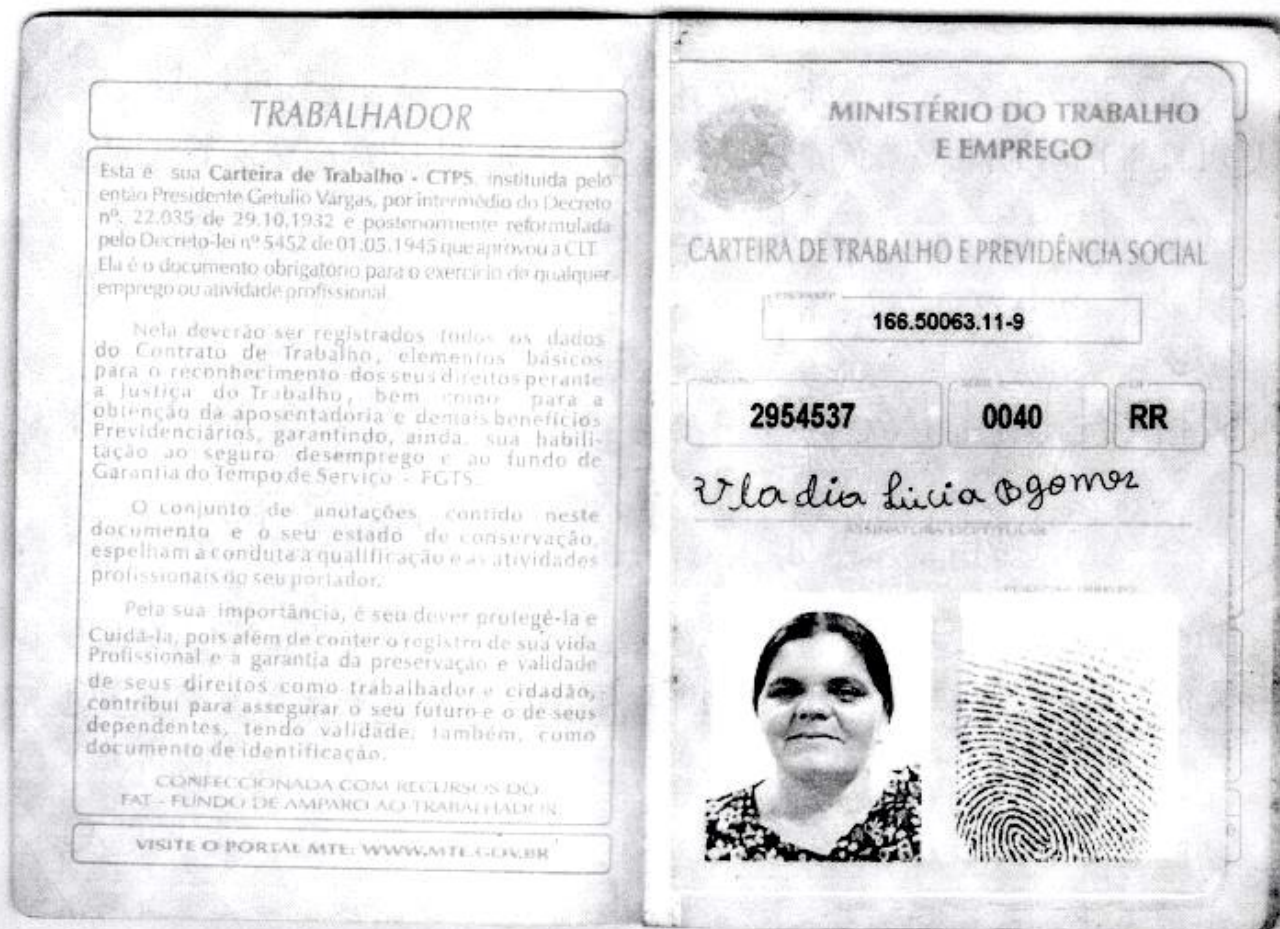 TRABALHADOR
Esta é sua Carteira de Trabalho - CTPS, instituída pelo
então Presidente Getulio Vargas, por intermédio do Decreto
nº. 22.035 de 29.10.1932 e posteriormente reformulada
pelo Decreto-lei nº 5452 de 01.05.1945 que aprovou a CLT.
Ela é o documento obrigatório para o exercício de qualquer
emprego ou atividade profissional.
Nela deverão ser registrados todos os dados
do Contrato de Trabalho, elementos básicos
para o reconhecimento dos seus direitos perante
a Justiça do Trabalho, bem como para a
obtenção da aposentadoria e demais benefícios
Previdenciários, garantindo, ainda, sua habili-
tação ao seguro desemprego e ao fundo de
Garantia do Tempo de Serviço - FGTS.
O conjunto de anotações contido neste
documento e o seu estado de conservação,
espelham a conduta a qualificação e as atividades
profissionais do seu portador.
Pela sua importância, é seu dever protegê-la e
Cuidá-la, pois além de conter o registro de sua vida
Profissional e a garantia da preservação e validade
de seus direitos como trabalhador e cidadão,
contribui para assegurar o seu futuro e o de seus
dependentes, tendo validade, também, como
documento de identificação.
CONFECCIONADA COM RECURSOS DO
FAT - FUNDO DE AMPARO AO TRABALHADOR
VISITE O PORTAL MTE: WWW.MTE.GOV.BR
MINISTÉRIO DO TRABALHO
E EMPREGO
CARTEIRA DE TRABALHO E PREVIDÊNCIA SOCIAL
166.50063.11-9
2954537 0040 RR
Vladia Lúcia B gomes
ASSINATURA DO TITULAR